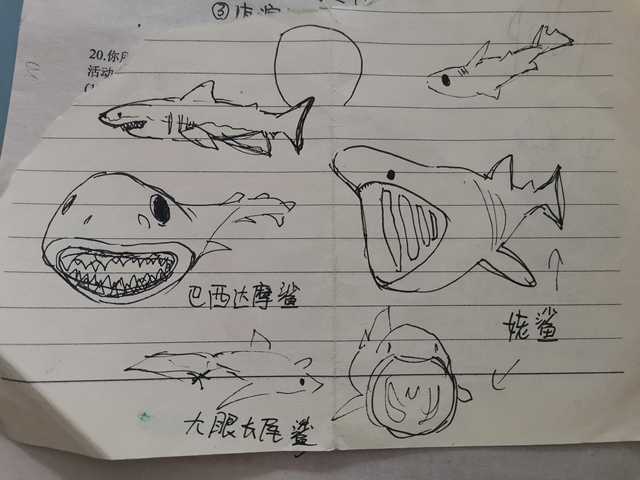 ③
20.你
活动
巴西达摩鲨
姥鲨
大眼长尾鲨